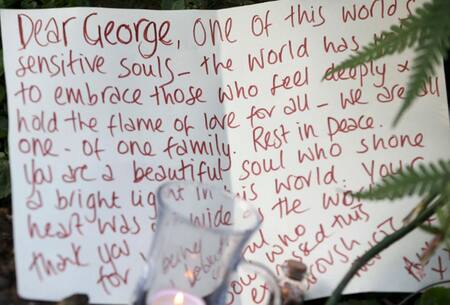 Dear George, one of this world's
sensitive souls - the world has
to embrace those who feel deeply &
hold the flame of love for all - we are all
one - of one family. Rest in Peace.
You are a beautiful soul who shone
a bright light in this world. Your
heart was wide the wo
thank you being soul who this
for beautiful expressed
through